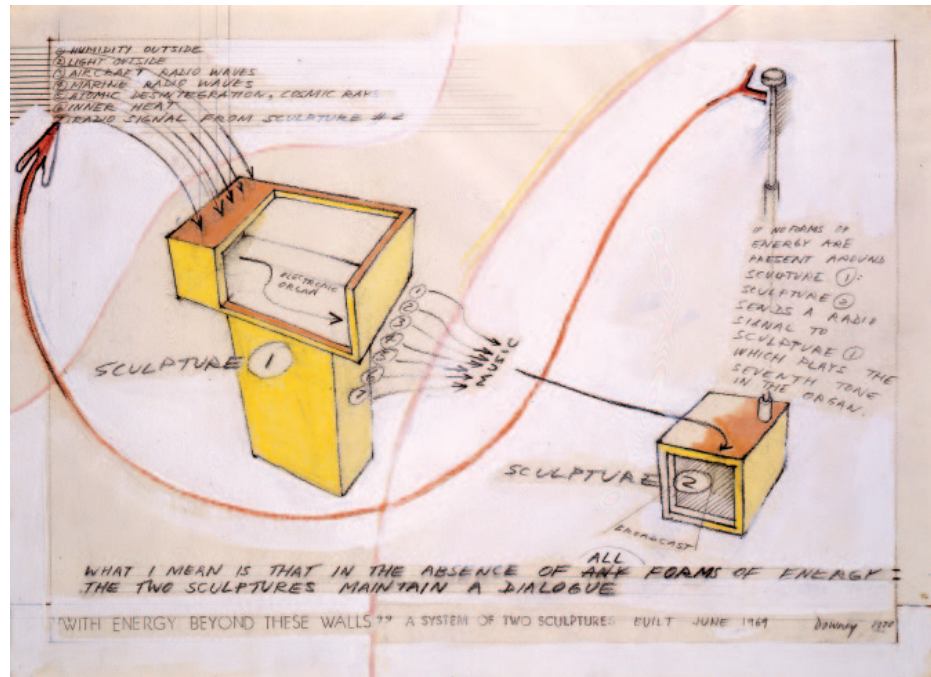 ① HUMIDITY OUTSIDE
② LIGHT OUTSIDE
③ AIRCRAFT RADIO WAVES
④ MARINE RADIO WAVES
⑤ ATOMIC DESINTEGRATION, COSMIC RAYS
⑥ INNER HEAT
⑦ RADIO SIGNAL FROM SCULPTURE # 2
ELECTRONIC
ORGAN
1
2
3
4
5
6
7
MUSIC
SCULPTURE ①
IF NO FORMS OF
ENERGY ARE
PRESENT AROUND
SCULPTURE ①:
SCULPTURE ②
SENDS A RADIO
SIGNAL TO
SCULPTURE ①
WHICH PLAYS THE
SEVENTH TONE
IN THE ORGAN.
SCULPTURE ②
BROADCAST
ALL
WHAT I MEAN IS THAT IN THE ABSENCE OF ANY FORMS OF ENERGY
THE TWO SCULPTURES MAINTAIN A DIALOGUE
"WITH ENERGY BEYOND THESE WALLS" A SYSTEM OF TWO SCULPTURES BUILT JUNE 1969 Downey 1970